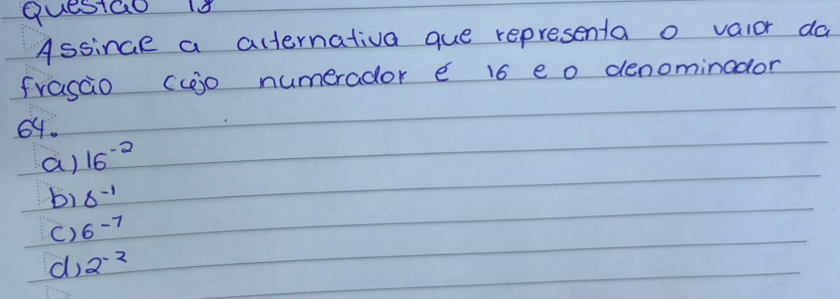 Questão 18
Assinae a alternativa que representa o valor da
fração cujo numerador é 16 e o denominador
64.
a) 16⁻²
b) 6⁻¹
c) 6⁻⁷
d) 2⁻²